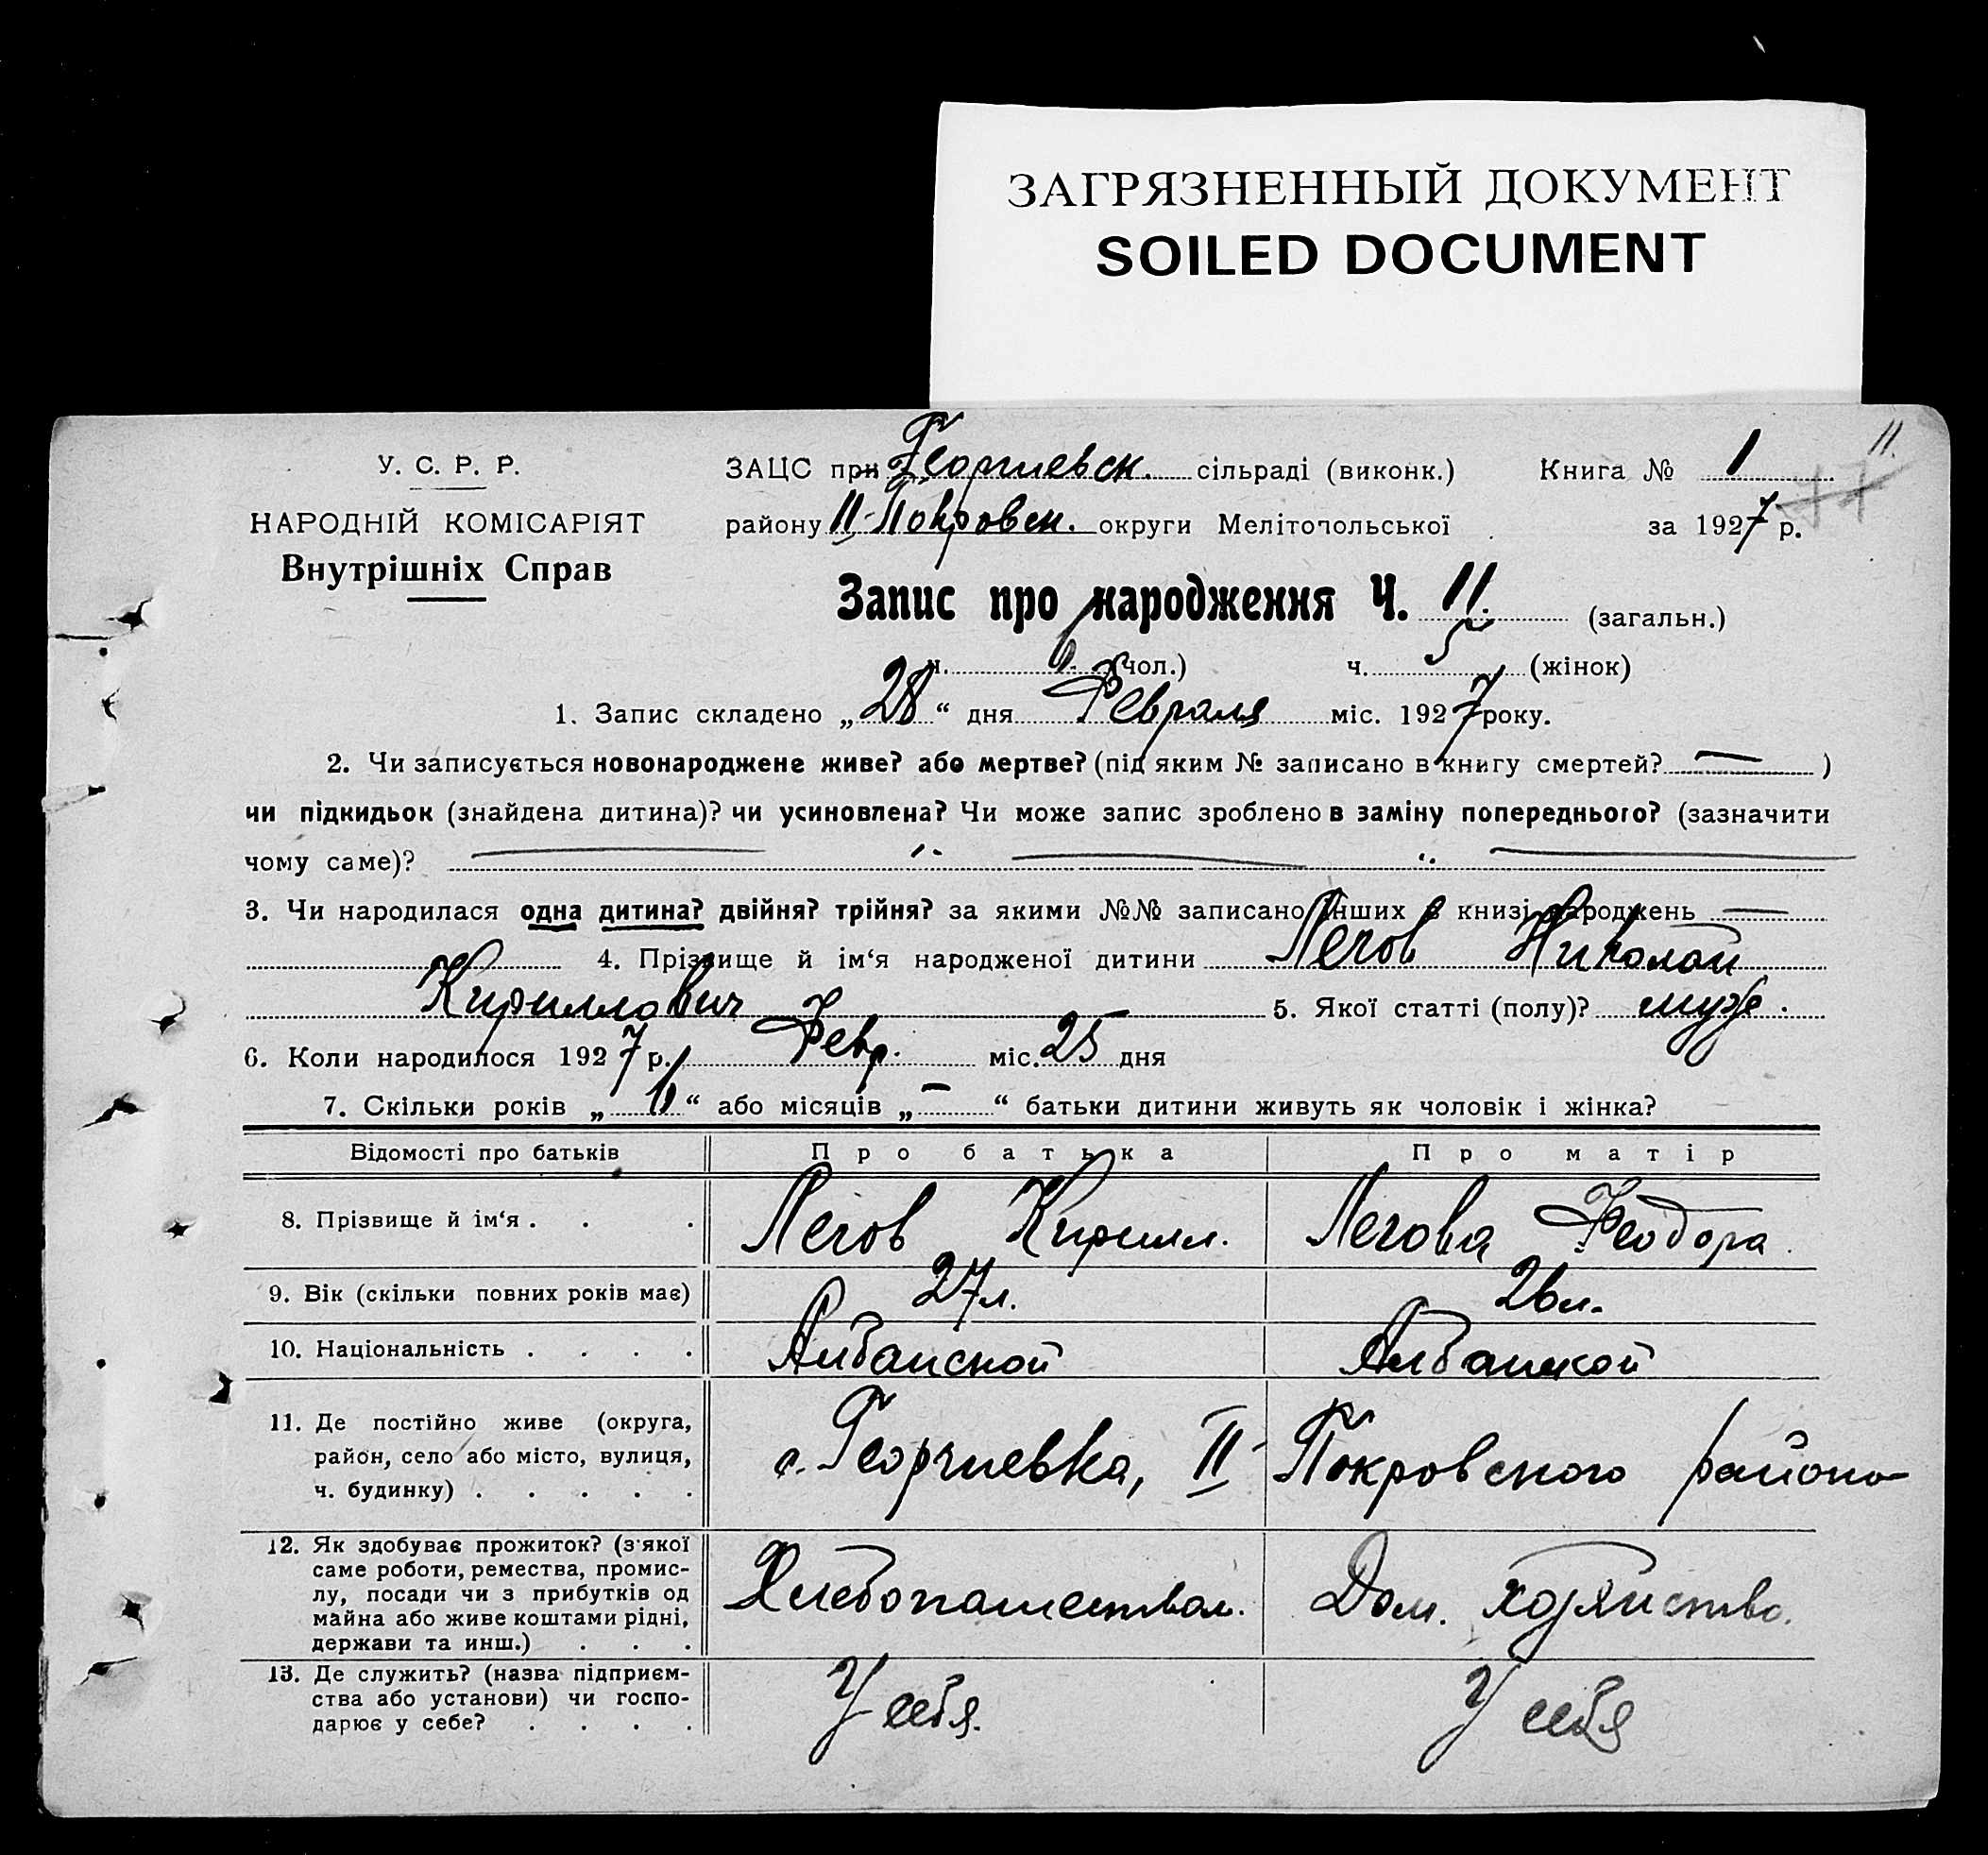 ЗАГРЯЗНЕННЫЙ ДОКУМЕНТ
SOILED DOCUMENT
11.
У. С. Р. Р.
НАРОДНІЙ КОМІСАРІЯТ
Внутрішніх Справ
ЗАЦС при Георгиевск. сільраді (виконк.) Книга № 1
району II-Покровск. округи Мелітопольської за 1927 р.
Запис про народження Ч. 11. (загальн.)
ч. 6. (чол.) ч. 5 (жінок)
1. Запис складено „28“ дня Февраля міс. 1927 року.
2. Чи записується новонароджене живе? або мертве? (під яким № записано в книгу смертей? — )
чи підкидьок (знайдена дитина)? чи усиновлена? Чи може запис зроблено в заміну попереднього? (зазначити
чому саме)? — „ — „ —
3. Чи народилася одна дитина? двійня? трійня? за якими №№ записано інших в книзі народжень —
4. Прізвище й ім‘я народженої дитини Легов Николай
Кириллович 5. Якої статті (полу)? муж.
6. Коли народилося 1927 р. Февр. міс. 25 дня
7. Скільки років „ “ або місяців „—“ батьки дитини живуть як чоловік і жінка?
Відомості про батьків Про батька Про матір
8. Прізвище й ім‘я . . . Легов Кирилл. Легова Феодора.
9. Вік (скільки повних років має) 27 л. 26 л.
10. Національність . . . . Албанской Албанской
11. Де постійно живе (округа,
район, село або місто, вулиця,
ч. будинку) . . . . .
с. Георгиевка, II-Покровского района
12. Як здобуває прожиток? (з‘якої
саме роботи, ремества, промис-
лу, посади чи з прибутків од
майна або живе коштами рідні,
держави та инш.) . . .
Хлебопашеством. Дом. хозяйство.
13. Де служить? (назва підприєм-
ства або установи) чи госпо-
дарює у себе? . . . .
У себя. У себя